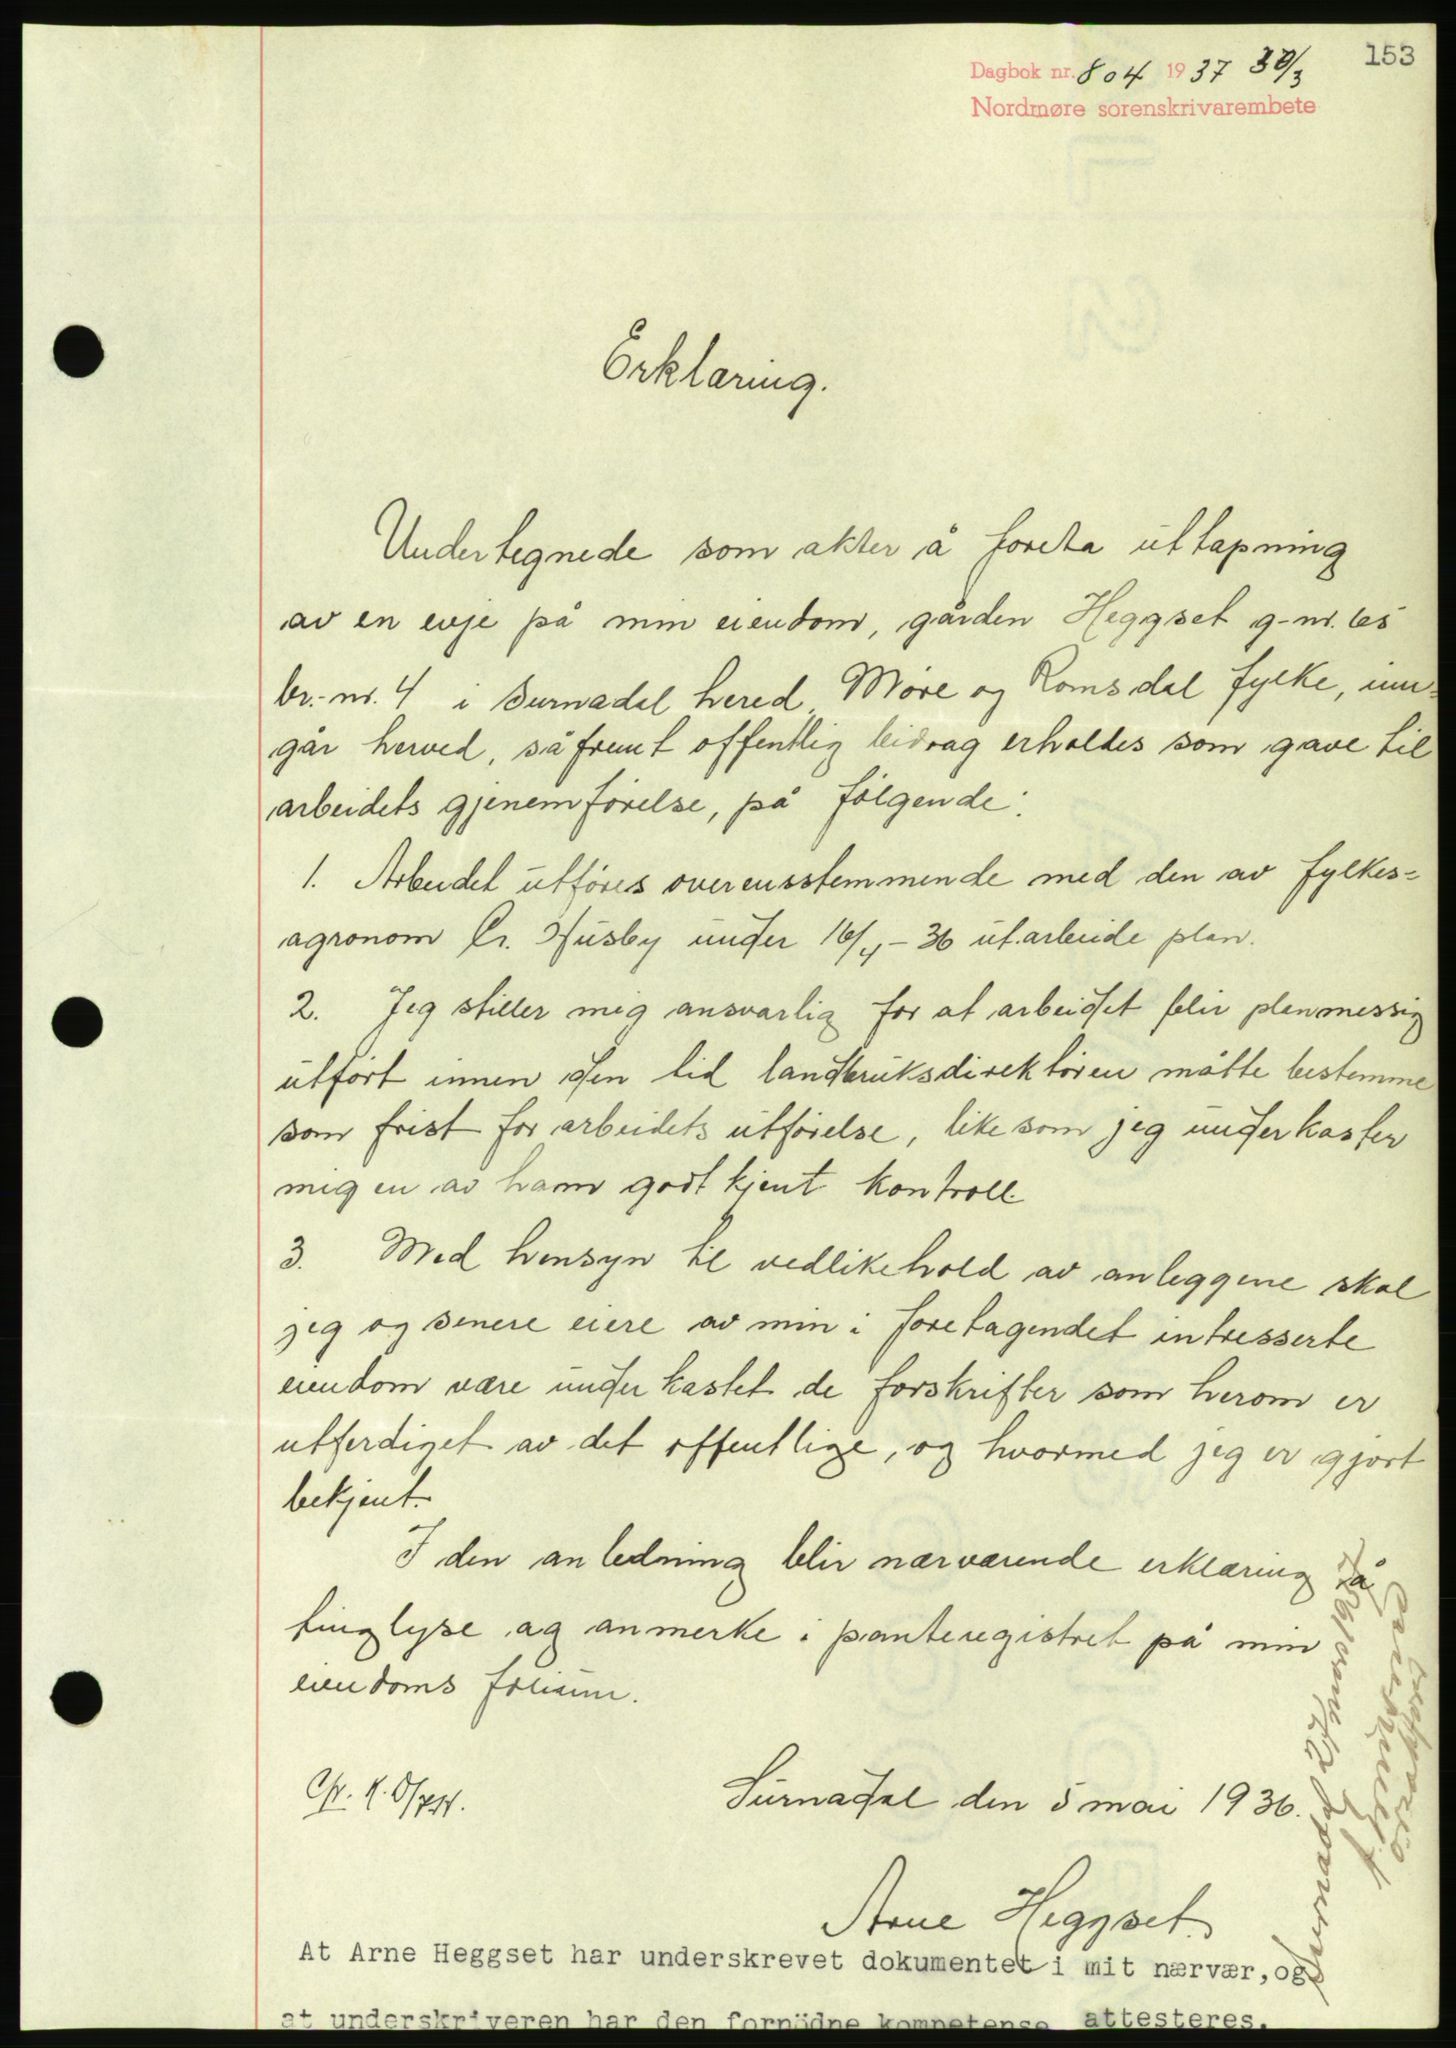 153
Dagbok nr. 804 1937 30/3
Nordmøre sorenskrivarembete
Erklæring.
Undertegnede som akter å foreta uttapning
av en evje på min eiendom, gården Heggset g-nr. 65
br.-nr. 4 i Surnadal hered, Möre og Romsdal fylke, inn-
går herved, såfremt offentlig bidrag erholdes som gave til
arbeidets gjenemförelse, på fölgende:
1. Arbeidet utföres overensstemmende med den av fylkes=
agronom Cr. Husby under 16/4-36 utarbeide plan.
2. Jeg stiller mig ansvarlig for at arbeidet blir planmessig
utfört innen den tid landbruksdirektören måtte bestemme
som frist for arbeidets utförelse, like som jeg underkaster
mig en av ham godtkjent kontroll.
3. Med hensyn til vedlikehold av anleggene skal
jeg og senere eiere av min i foretagendet intresserte
eiendom være underkastet de forskrifter som herom er
utferdiget av det offentlige, og hvormed jeg er gjort
bekjent.
I den anledning blir nærværende erklæring å
tinglyse og anmerke i panteregistret på min
eiendoms folium.
Surnadal den 5 mai 1936.
Arne Heggset.
At Arne Heggset har underskrevet dokumentet i mit nærvær, og
at underskriveren har den fornödne kompetense attesteres.
Surnadal 22 mars 1937